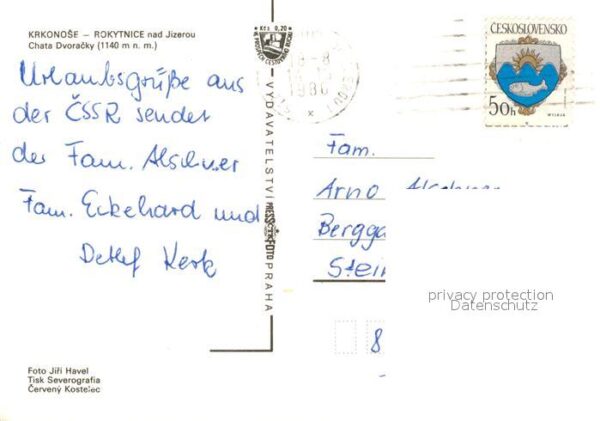 KRKONOŠE – ROKYTNICE nad Jizerou
Chata Dvoračky (1140 m n. m.)
Urlaubsgrüße aus
der ČSSR sendet
der Fam.
Fam. Eckehard und
Detlef Kerk
Foto Jiří Havel
Tisk Severografia
Červený Kostelec
Kčs 0,20
VYDAVATELSTVÍ PRESSFOTO PRAHA
ČESKOSLOVENSKO
50h
Fam.
Arno
Bergga
Stein
8
privacy protection
Datenschutz